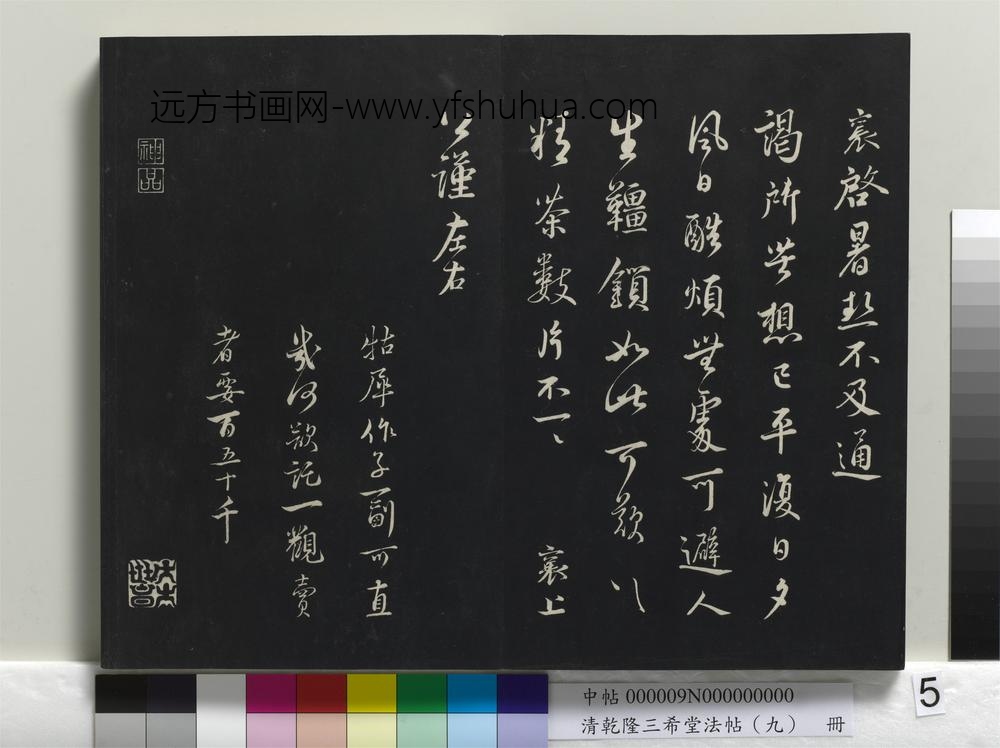 远方书画网-www.yfshuhua.com
襄啓暑热不及通
謁所苦想已平復日夕
風日酷煩無處可避人
生韁鎖如此可歎以
精茶數片不一一 襄上
公謹左右
牯犀作子一副可直
幾何欲託一觀賣
者要百五十千
神品
中帖 000009N000000000
清乾隆三希堂法帖（九） 冊
5